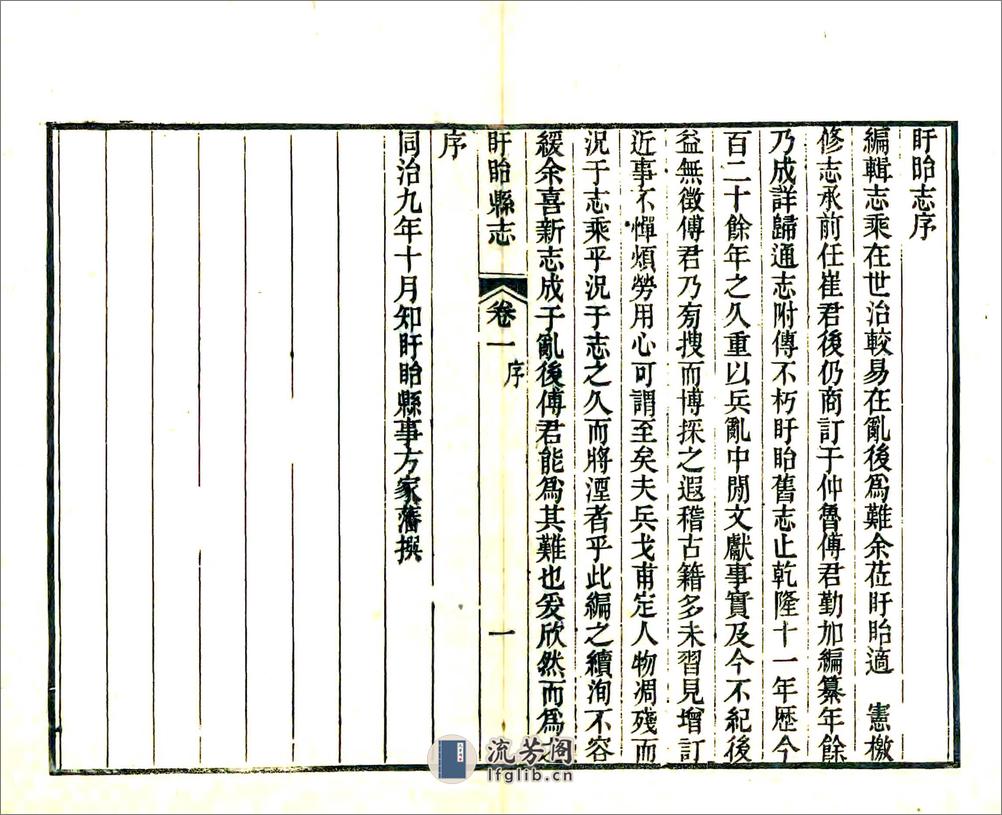 盱眙志序
編輯志乘在世治較易在亂後爲難余莅盱眙適　憲檄
修志承前任崔君後仍商訂于仲魯傅君勤加編纂年餘
乃成詳歸通志附傳不朽盱眙舊志止乾隆十一年歷今
百二十餘年之久重以兵亂中閒文獻事實及今不紀後
益無徵傅君乃旁搜而博採之遐稽古籍多未習見增訂
近事不憚煩勞用心可謂至矣夫兵戈甫定人物凋殘而
況于志乘乎況于志之久而將湮者乎此編之續洵不容
緩余喜新志成于亂後傅君能爲其難也爰欣然而爲
盱眙縣志
卷一
序
一
序
同治九年十月知盱眙縣事方家藩撰
流芳閣
lfglib.cn